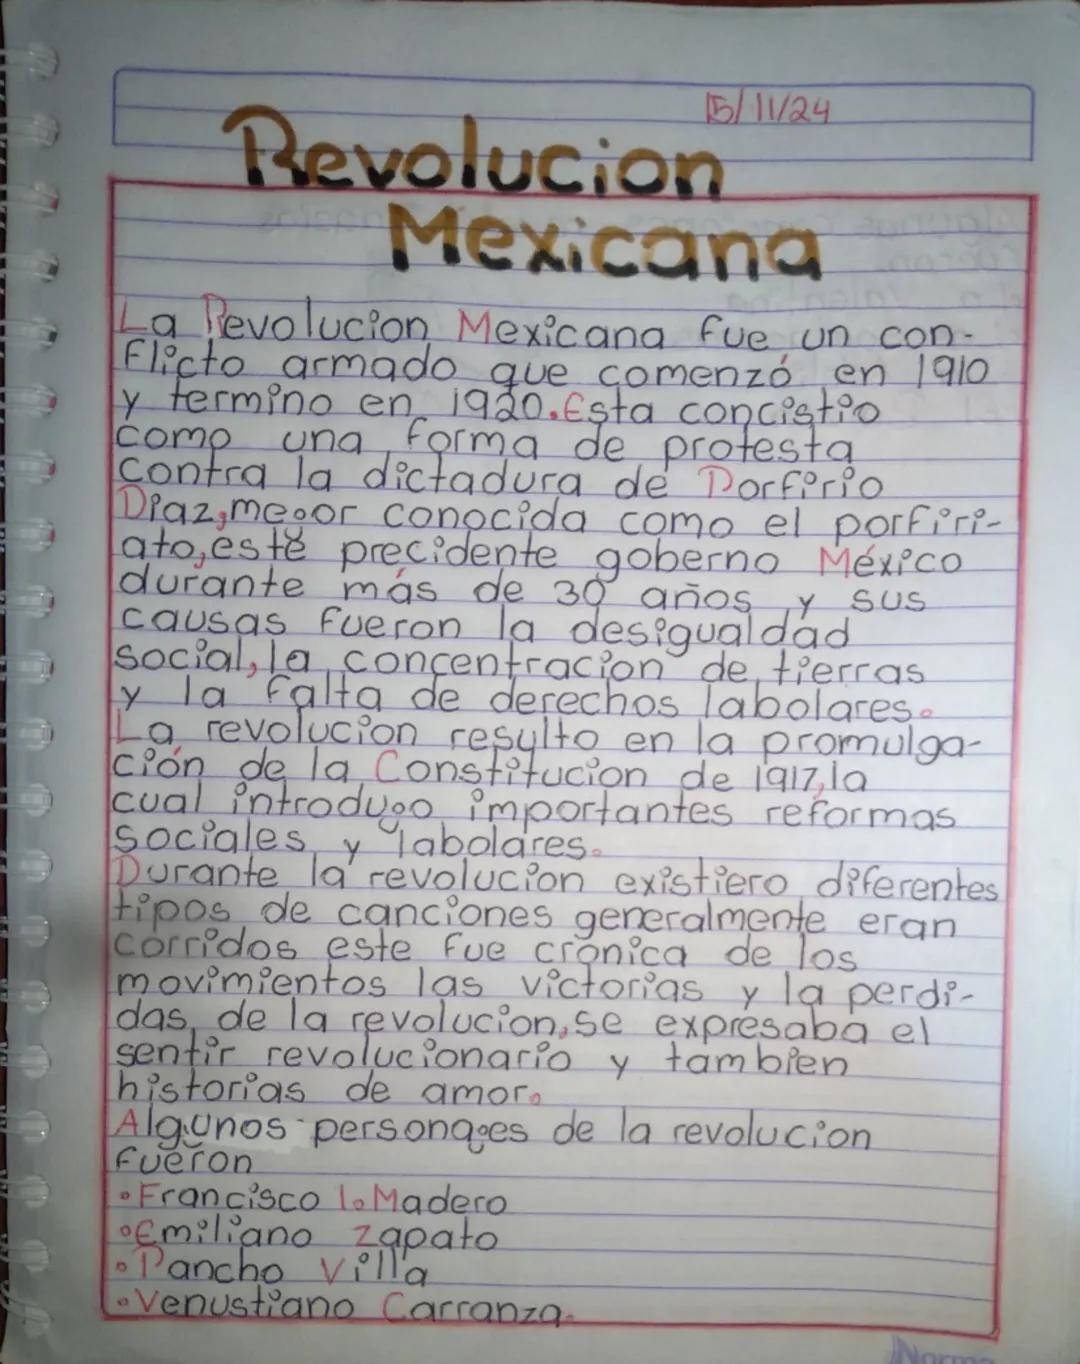 15/11/24
Revolucion
Mexicana
La Revolucion Mexicana fue un con-
flicto armado que comenzó en 1910
y termino en 1920. Esta concistio
como una forma de protesta
contra la dictadura de Porfirio
Diaz, mejor conocida como el porfiri-
ato, este precidente goberno México
durante más de 30 años y sus
causas fueron la desigualdad
social, la concentracion de tierras
y la falta de derechos labolares.
La revolucion resulto en la promulga-
ción de la Constitucion de 1917, la
cual introdujo importantes reformas
sociales y labolares.
Durante la revolucion existiero diferentes
tipos de canciones generalmente eran
corridos este fue cronica de los
movimientos las victorias y la perdi-
das de la revolucion, se expresaba el
sentir revolucionario y tambien
historias de amor.
Algunos personajes de la revolucion
fueron
• Francisco I. Madero
• Emiliano Zapato
• Pancho Villa
• Venustiano Carranza.
Norma